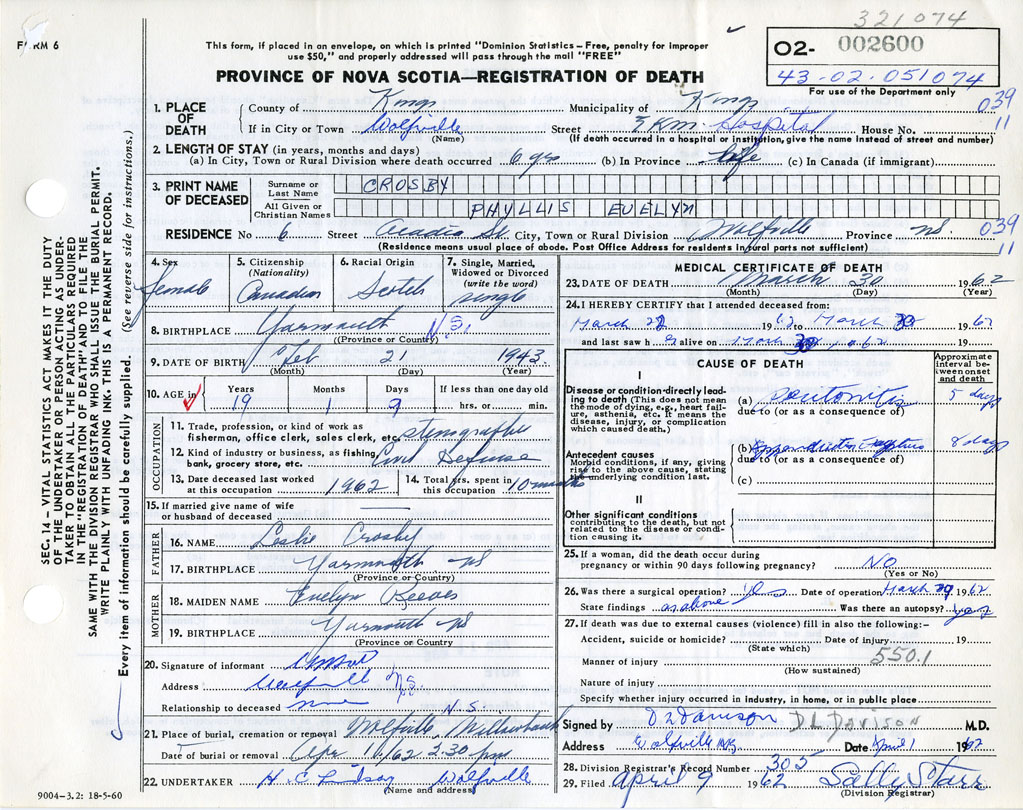 321074
FORM 6
This form, if placed in an envelope, on which is printed "Dominion Statistics – Free, penalty for improper
use $50," and properly addressed will pass through the mail "FREE"
02- 002600
43-02-051074
For use of the Department only
PROVINCE OF NOVA SCOTIA—REGISTRATION OF DEATH
1. PLACE OF DEATH
County of Kings Municipality of Kings 039
If in City or Town Wolfville Street E.K.M. Hospital House No. 11
(Name) (If death occurred in a hospital or institution, give the name instead of street and number)
2. LENGTH OF STAY (in years, months and days)
(a) In City, Town or Rural Division where death occurred 6 yrs (b) In Province life (c) In Canada (if immigrant)
3. PRINT NAME OF DECEASED
Surname or Last Name CROSBY
All Given or Christian Names PHYLLIS EVELYN
RESIDENCE No 6 Street Acadia St. City, Town or Rural Division Wolfville Province NS. 039
11
(Residence means usual place of abode. Post Office Address for residents in rural parts not sufficient)
4. Sex Female
5. Citizenship (Nationality) Canadian
6. Racial Origin Scotch
7. Single, Married, Widowed or Divorced (write the word) single
8. BIRTHPLACE Yarmouth N.S.
(Province or Country)
9. DATE OF BIRTH Feb 21 1943.
(Month) (Day) (Year)
10. AGE in Years 19 Months 1 Days 9 If less than one day old hrs. or min.
OCCUPATION
11. Trade, profession, or kind of work as
fisherman, office clerk, sales clerk, etc. stenographer
12. Kind of industry or business, as fishing,
bank, grocery store, etc. Civil Defense
13. Date deceased last worked
at this occupation 1962
14. Total yrs. spent in
this occupation 10 months
15. If married give name of wife
or husband of deceased
FATHER
16. NAME Leslie Crosby
17. BIRTHPLACE Yarmouth NS
(Province or Country)
MOTHER
18. MAIDEN NAME Evelyn Reeves
19. BIRTHPLACE Yarmouth NS
(Province or Country
20. Signature of informant
Address Wolfville N.S.
Relationship to deceased none N.S.
21. Place of burial, cremation or removal Wolfville Willowbank
Date of burial or removal Apr 1/62 2.30 pm
22. UNDERTAKER H.C. Lindsay Wolfville
(Name and address)
9004-3.2: 18-5-60
MEDICAL CERTIFICATE OF DEATH
23. DATE OF DEATH March 30 1962
(Month) (Day) (Year)
24. I HEREBY CERTIFY that I attended deceased from:
March 28 1962 to March 30 1962
and last saw h alive on March 30 1962
CAUSE OF DEATH
Approximate interval between onset and death
I
Disease or condition directly leading to death (This does not mean the mode of dying, e.g., heart failure, asthenia, etc. It means the disease, injury, or complication which caused death.)
(a) Peritonitis 5 days
due to (or as a consequence of)
Antecedent causes
Morbid conditions, if any, giving rise to the above cause, stating the underlying condition last.
(b) 8 days
due to (or as a consequence of)
(c)
II
Other significant conditions
contributing to the death, but not related to the disease or condition causing it.
25. If a woman, did the death occur during
pregnancy or within 90 days following pregnancy? NO
(Yes or No)
26. Was there a surgical operation? Yes Date of operation March 29 1962
State findings as above Was there an autopsy? yes
27. If death was due to external causes (violence) fill in also the following:–
Accident, suicide or homicide? Date of injury 19
(State which)
Manner of injury 550.1
(How sustained)
Nature of injury
Specify whether injury occurred in industry, in home, or in public place
Signed by D L Davison D.L. DAVISON M.D.
Address Wolfville NS. Date April 1 1962
28. Division Registrar's Record Number 305
29. Filed April 9 1962 Sally Starr
(Division Registrar)
SEC. 14 – VITAL STATISTICS ACT MAKES IT THE DUTY
OF THE UNDERTAKER OR PERSON ACTING AS UNDER-
TAKER "TO OBTAIN ALL THE PARTICULARS REQUIRED
IN THE "REGISTRATION OF DEATH" AND TO FILE THE
SAME WITH THE DIVISION REGISTRAR WHO SHALL ISSUE THE BURIAL PERMIT.
WRITE PLAINLY WITH UNFADING INK. THIS IS A PERMANENT RECORD.
Every item of information should be carefully supplied. (See reverse side for instructions.)